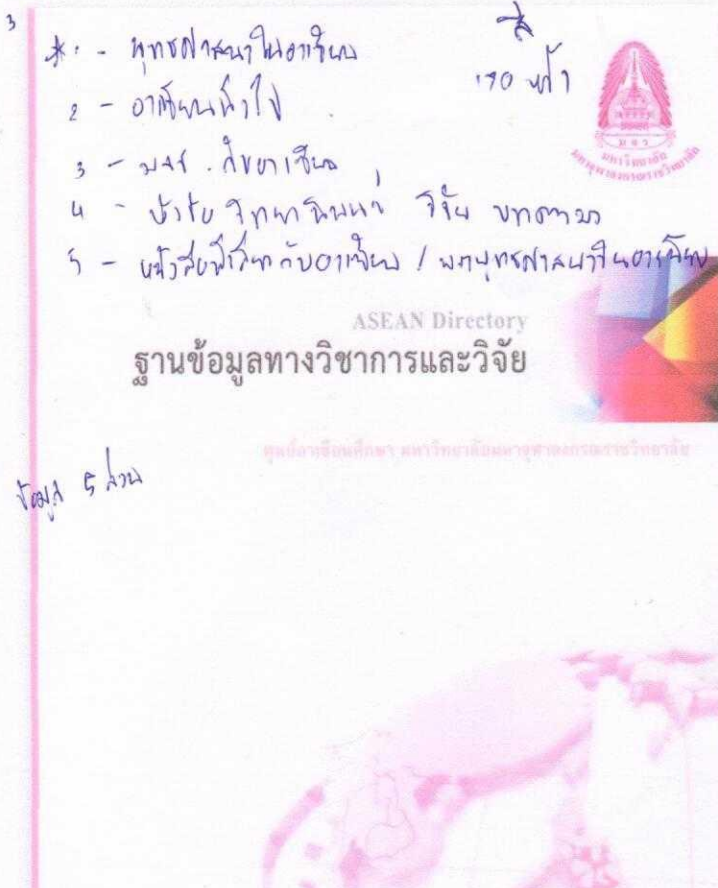 3
1 - พุทธศาสนาในอาเซียน
สี
190 หน้า
2 - อาเซียนทั่วไป
3 - มจร. กับอาเซียน
4 - วิทยานิพนธ์ วิจัย บทความ
5 - หนังสือที่เกี่ยวกับอาเซียน / พระพุทธศาสนาในอาเซียน
มจร
มหาวิทยาลัย
มหาจุฬาลงกรณราชวิทยาลัย
ASEAN Directory
ฐานข้อมูลทางวิชาการและวิจัย
ศูนย์อาเซียนศึกษา มหาวิทยาลัยมหาจุฬาลงกรณราชวิทยาลัย
ข้อมูล 5 ส่วน